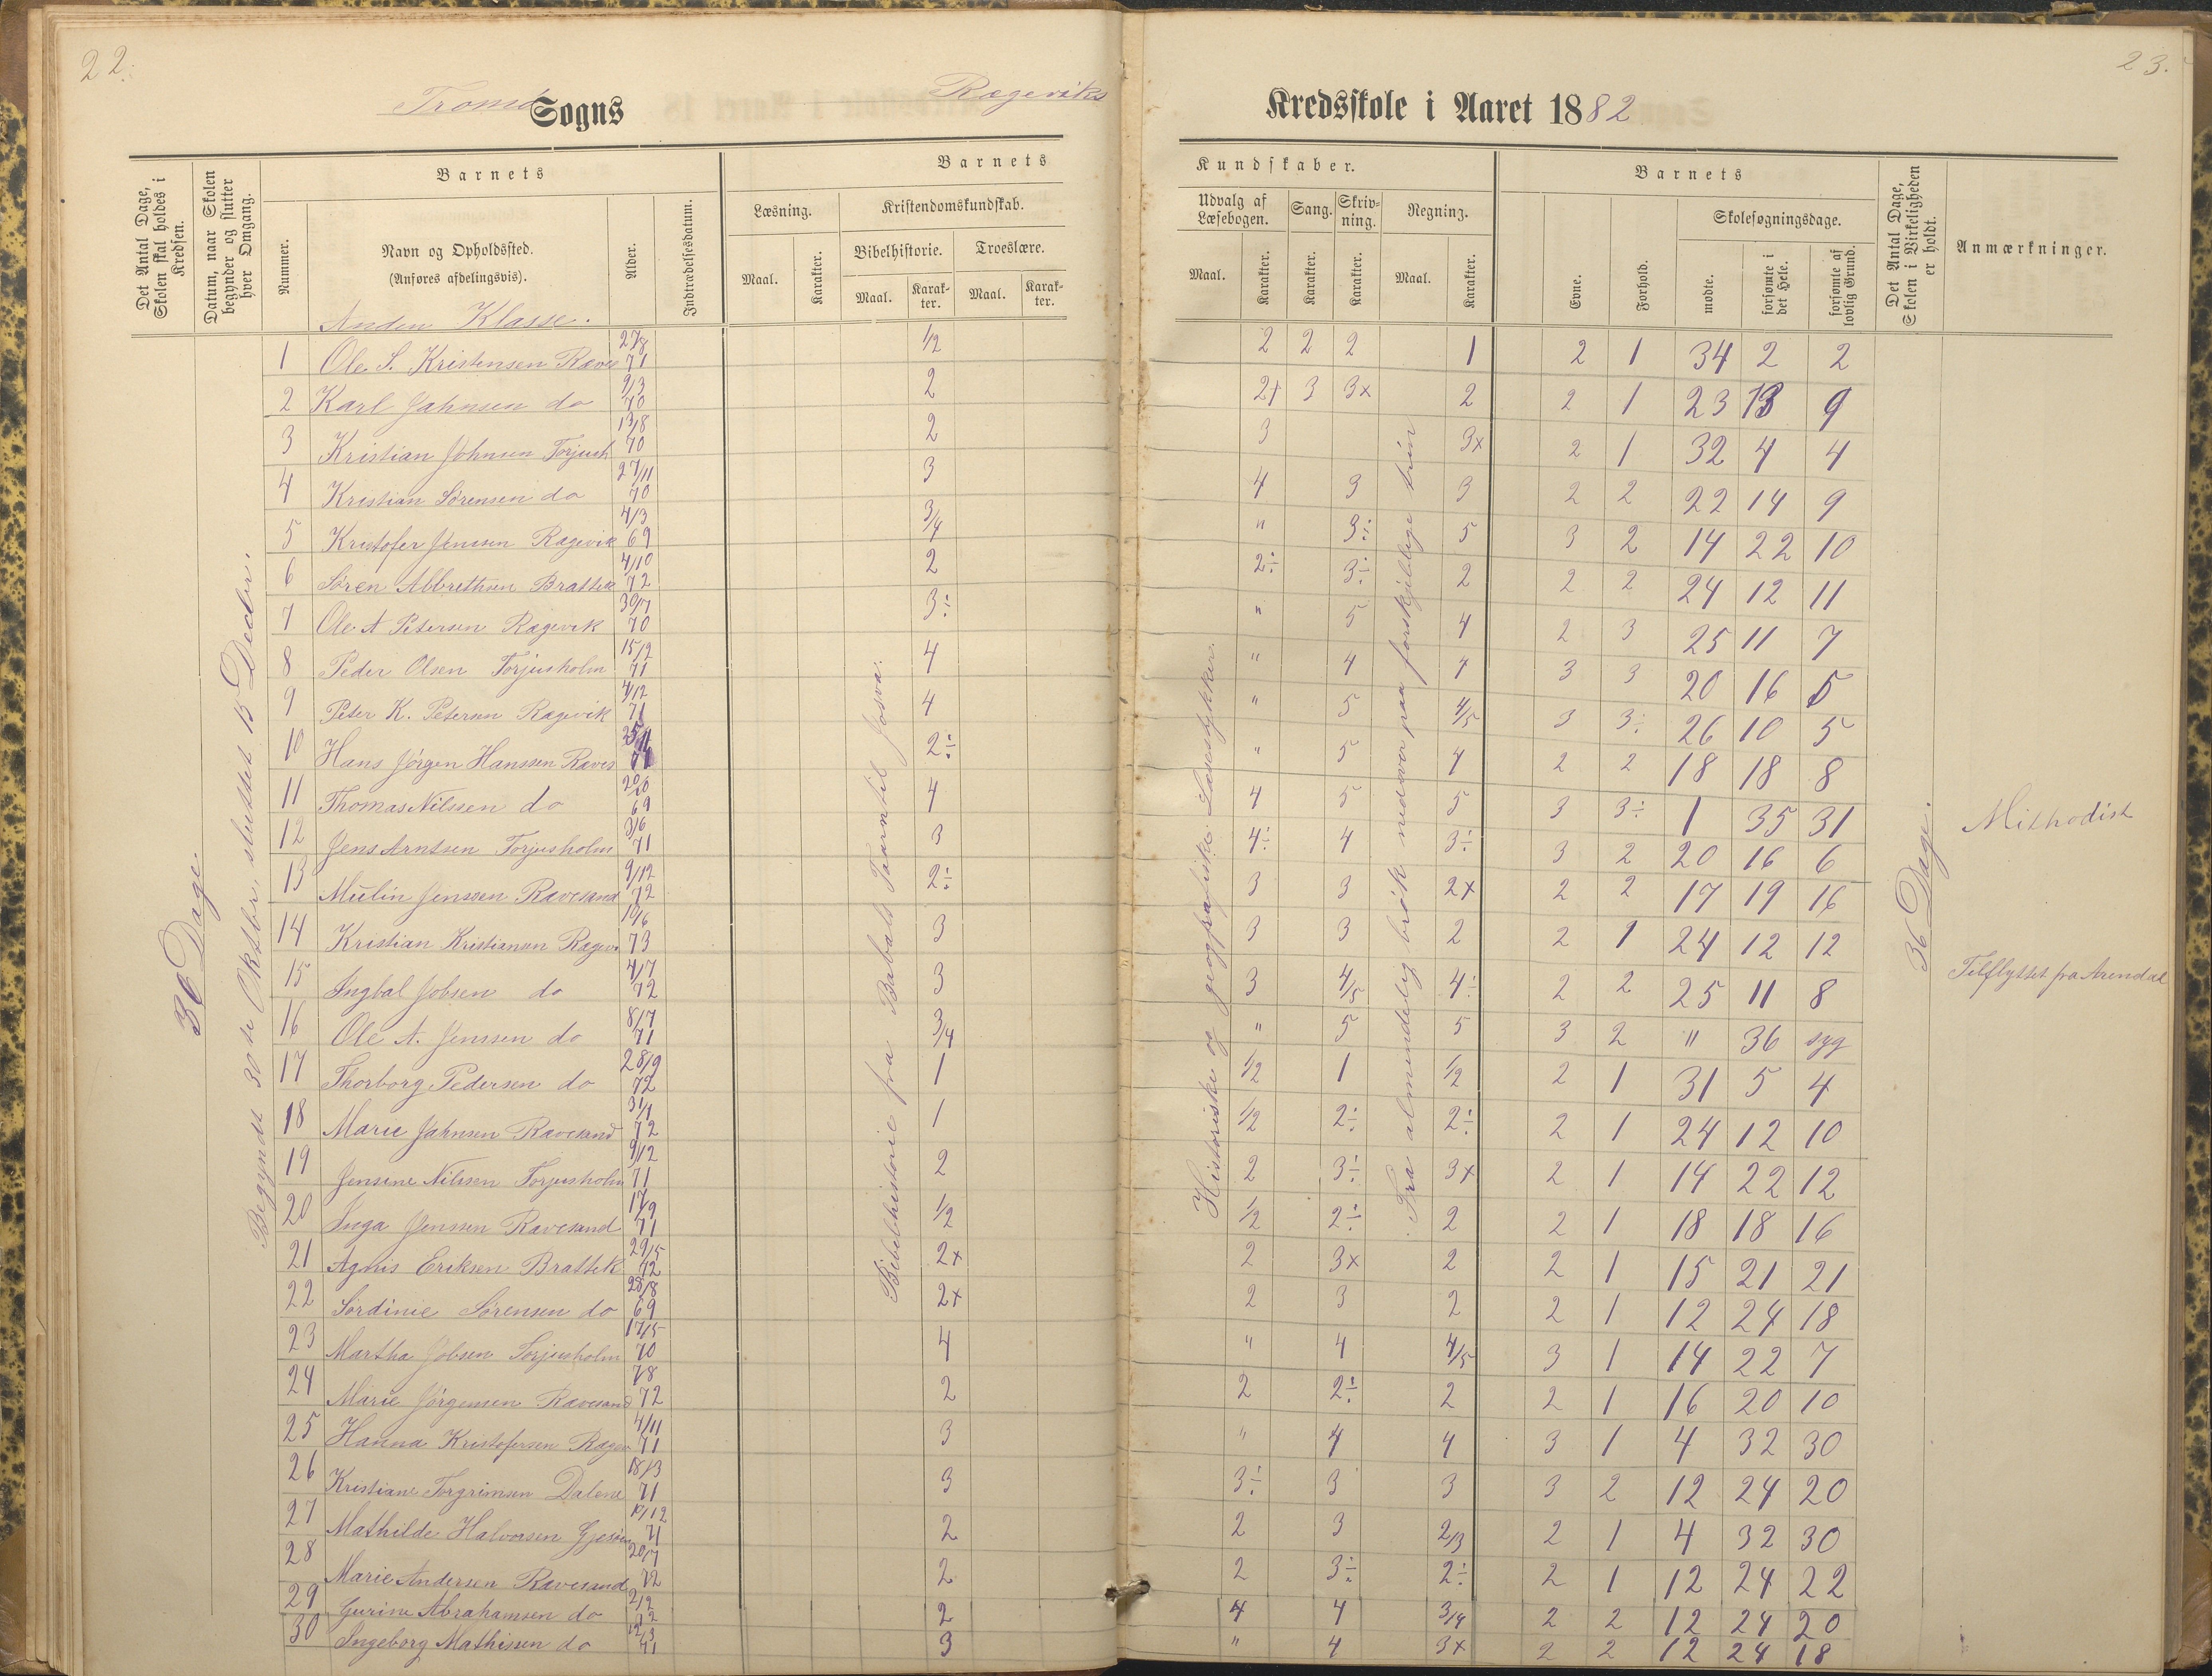 22.
Tromø Sogns Rægeviks
Kredsskole i Aaret 1882
23.
Det Antal Dage, Skolen skal holdes i Kredsen.
Datum, naar Skolen begynder og slutter hver Omgang.
Nummer.
Barnets
Navn og Opholdssted.
(Anføres afdelingsvis).
Alder.
Indtrædelsesdatum.
Barnets
Læsning.
Maal.
Karakter.
Kristendomskundskab.
Bibelhistorie.
Maal.
Karak-
ter.
Troeslære.
Maal.
Karak-
ter.
Kundskaber.
Udvalg af
Læsebogen.
Maal.
Karakter.
Sang.
Karakter.
Skriv-
ning.
Karakter.
Regning.
Maal.
Karakter.
Barnets
Evne.
Forhold.
Skolesøgningsdage.
mødte.
forsømte i det Hele.
forsømte af lovlig Grund.
Det Antal Dage, Skolen i Virkeligheden er holdt.
Anmærkninger.
Anden Klasse.
36 Dage
Begyndt 30te Oktbr, sluttet 15 Decbr.
Bibelhistorie fra Babels Taarn til Josva.
Historiske og geografiske Læsestykker.
Fra almindelig brøk nedover paa forskjellige trin
36 Dage.
1 Ole S. Kristensen Raves 27/8 71 1/2 2 2 2 1 2 1 34 2 2
2 Karl Jahnsen do 9/3 70 2 2+ 3 3x 2 2 1 23 13 9
3 Kristian Johnsen Torjush 13/8 70 2 3 3x 2 1 32 4 4
4 Kristian Sørensen do 27/11 70 3 4 3 3 2 2 22 14 9
5 Kristofer Jensen Rægevik 4/3 69 3/4 " 3÷ 5 3 2 14 22 10
6 Søren Abbrethsen Brattek 4/10 72 2 2÷ 3÷ 2 2 2 24 12 11
7 Ole A Petersen Rægevik 30/7 70 3÷ " 5 4 2 3 25 11 7
8 Peder Olsen Torjusholm 15/2 71 4 " 4 4 3 3 20 16 5
9 Peter K. Petersen Rægevik 4/12 71 4 " 5 4/5 3 3÷ 26 10 5
10 Hans Jørgen Hanssen Raves 2÷ " 5 4 2 2 18 18 8
11 Thomas Nilssen do 69 4 4 5 5 3 3÷ 1 35 31 Methodist
12 Jens Arntsen Torjusholm 3/6 71 3 4÷ 4 3÷ 3 2 20 16 6
13 Mulin Jenssen Ravesand 9/12 72 2÷ 3 3 2x 2 2 17 19 16
14 Kristian Kristiansen Rægev 10/6 73 3 3 3 2 2 1 24 12 12
15 Ingbal Jobsen do 4/7 72 3 3 4/5 4÷ 2 2 25 11 8 Tilflyttet fra Arendal
16 Ole A. Jenssen do 8/7 71 3/4 " 5 5 3 2 " 36 syg
17 Thorborg Pedersen do 28/9 72 1 1/2 1 1/2 2 1 31 5 4
18 Marie Jahnsen Ravesand 31/1 72 1 1/2 2÷ 2÷ 2 1 24 12 10
19 Jensine Nilssen Torjusholm 9/12 71 2 2 3÷ 3x 2 1 14 22 12
20 Inga Jenssen Ravesand 17/9 71 1/2 1/2 2÷ 2 2 1 18 18 16
21 Agnis Eriksen Brattek 29/5 72 2x 2 3x 2 2 1 15 21 21
22 Sørdinie Sørensen do 28/8 69 2x 2 3 2 2 1 12 24 18
23 Martha Jobsen Torjusholm 17/5 70 4 " 4 4/5 3 1 14 22 7
24 Marie Jörgensen Ravesand 7/8 72 2 2 2÷ 2 2 1 16 20 10
25 Hanna Kristofersen Rægev 4/11 71 3 " 4 4 3 1 4 32 30
26 Kristiane Torgrimsen Dalene 18/3 71 3 3÷ 3 3 3 2 12 24 20
27 Mathilde Halvorsen 10/12 71 2 2 3 2/3 2 1 4 32 30
28 Marie Andersen Ravesand 20/7 72 2 2 3÷ 2÷ 2 1 12 24 22
29 Gurine Abrahamsen do 2/2 72 2 4 4 3/4 2 2 12 24 20
30 Ingeborg Mathisen do 12/3 71 3 " 4 3x 2 2 12 24 18